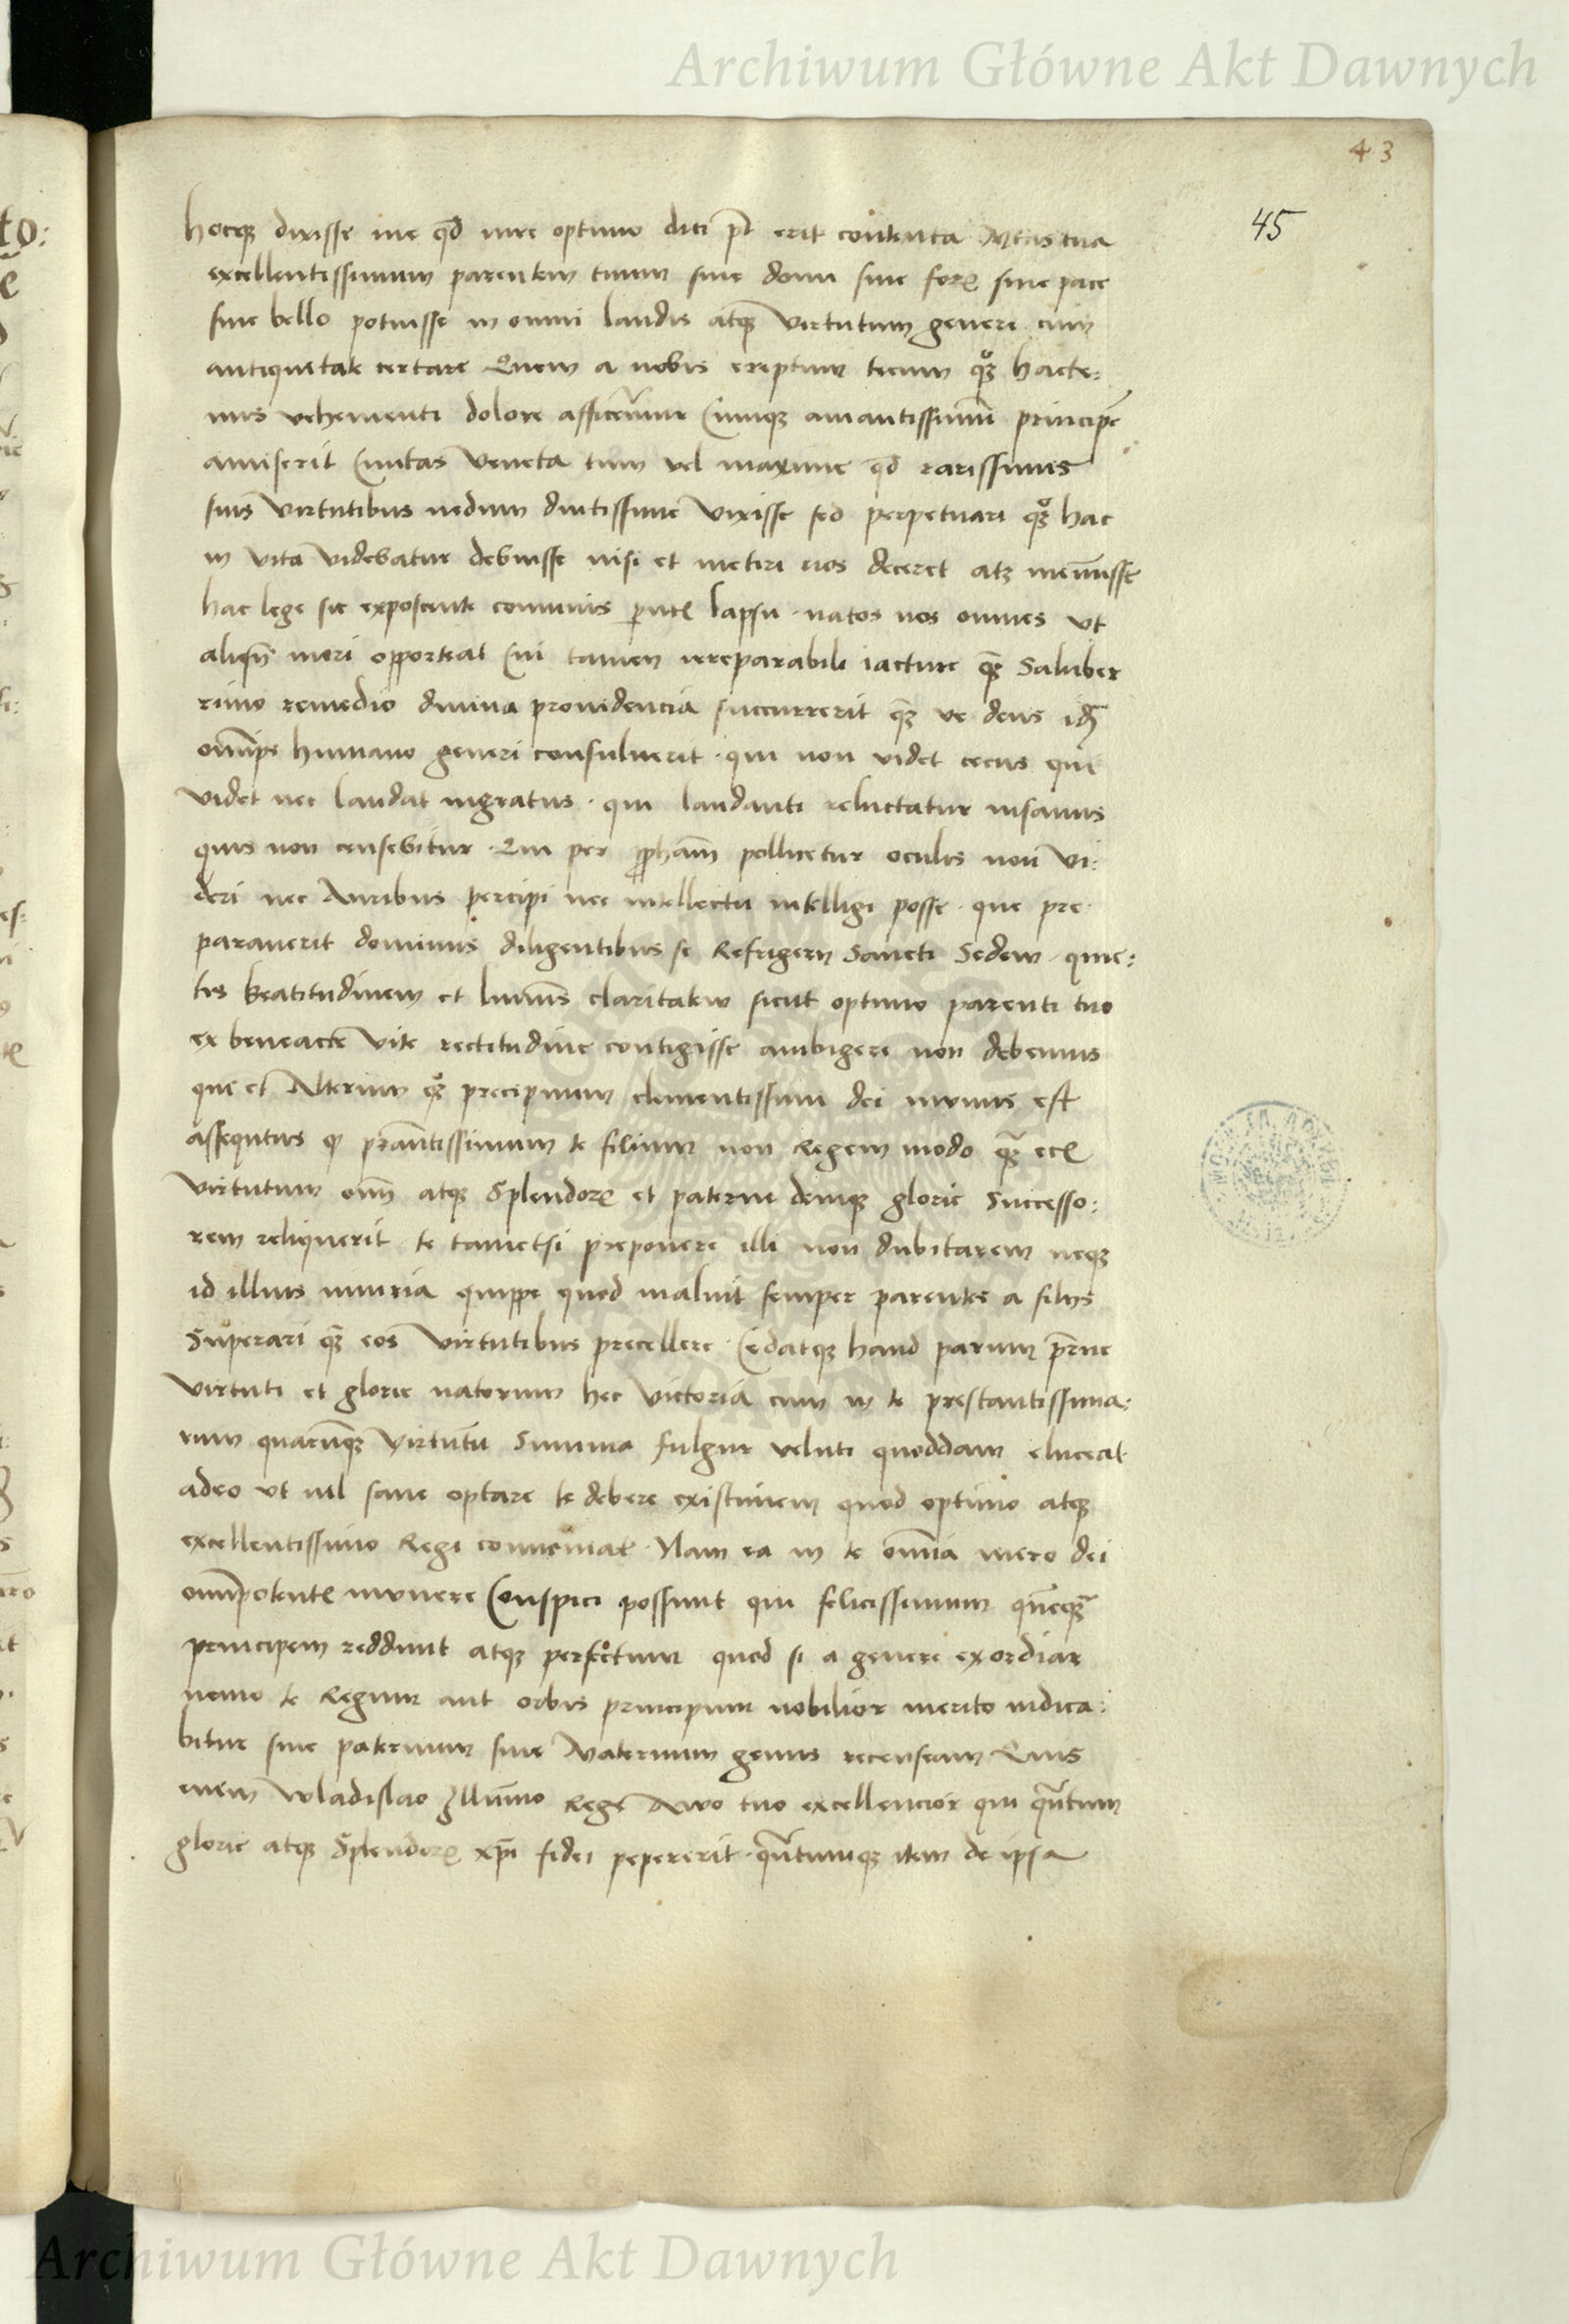 Archiwum Główne Akt Dawnych
43
45
hocque dixisse me qd iure optimo dici pt erit contenta Mtas tua
excellentissimum parentem tuum sive domi sive foris sive pace
sive bello potuisse in omni laudis atque virtutum genere cum
antiquitate certare Quem a nobis ereptum tecum quoque hacte:
nus vehementi dolore afficeremur Cumque amantissimum principem
amiserit Civitas Veneta tum vel maxime qd rarissimis
suis virtutibus nedum diutissime vixisse sed perpetuari quoque hac
in vita videbatur debuisse nisi et metiri nos deceret atque meminisse
hac lege sic exposcente communis parentis lapsu natos nos omnes ut
aliquando mori opporteat Cui tamen irreparabili iacture quam saluber
rimo remedio divina providencia succurrerit quam ve deus idem
omnipotens humano generi consuluerit qui non videt cecus qui
videt nec laudat ingratus qui laudanti reluctatur insanus
quis non censebitur Qui per prophetam pollicetur oculis non vi:
deri nec Auribus percipi nec intellectu intelligi posse que pre
paraverit dominus diligentibus se Refrigerii Sancti Sedem quie:
tis beatitudinem et luminis claritatem sicut optimo parenti tuo
ex beneacte vite rectitudine contigisse ambigere non debemus
qui et Alterum quoque precipuum clementissimi dei munus est
assequtus quod prestantissimum te filium non Regem modo quam etiam
virtutum omnium atque Splendoris et paterne denique glorie Successo:
rem reliquerit te tametsi preponere illi non dubitarem neque
id illius iniuria quippe quod maluit semper parentes a filiis
Superari quam eos virtutibus precellere Cedatque haud parum paterne
virtuti et glorie natorum hec victoria cum in te prestantissima:
rum quarumque virtutum Summa fulgur veluti quoddam eluceat
adeo ut nil sane optare te debere existimem quod optimo atque
excellentissimo Regi conveniat Nam ea in te omnia mero dei
omnipotentis munere Conspici possunt qui felicissimum quemquam
principem reddunt atque perfectum quod si a genere exordiar
nemo te Regum aut orbis principum nobilior merito iudica:
bitur sive paternum sive Maternum genus recenseam Quis
enim Wladislao Illustrissimo Rege Avo tuo excellencior qui quantum
glorie atque Splendoris xpi fidei pepererit quantumque item de ipsa
Archiwum Główne Akt Dawnych